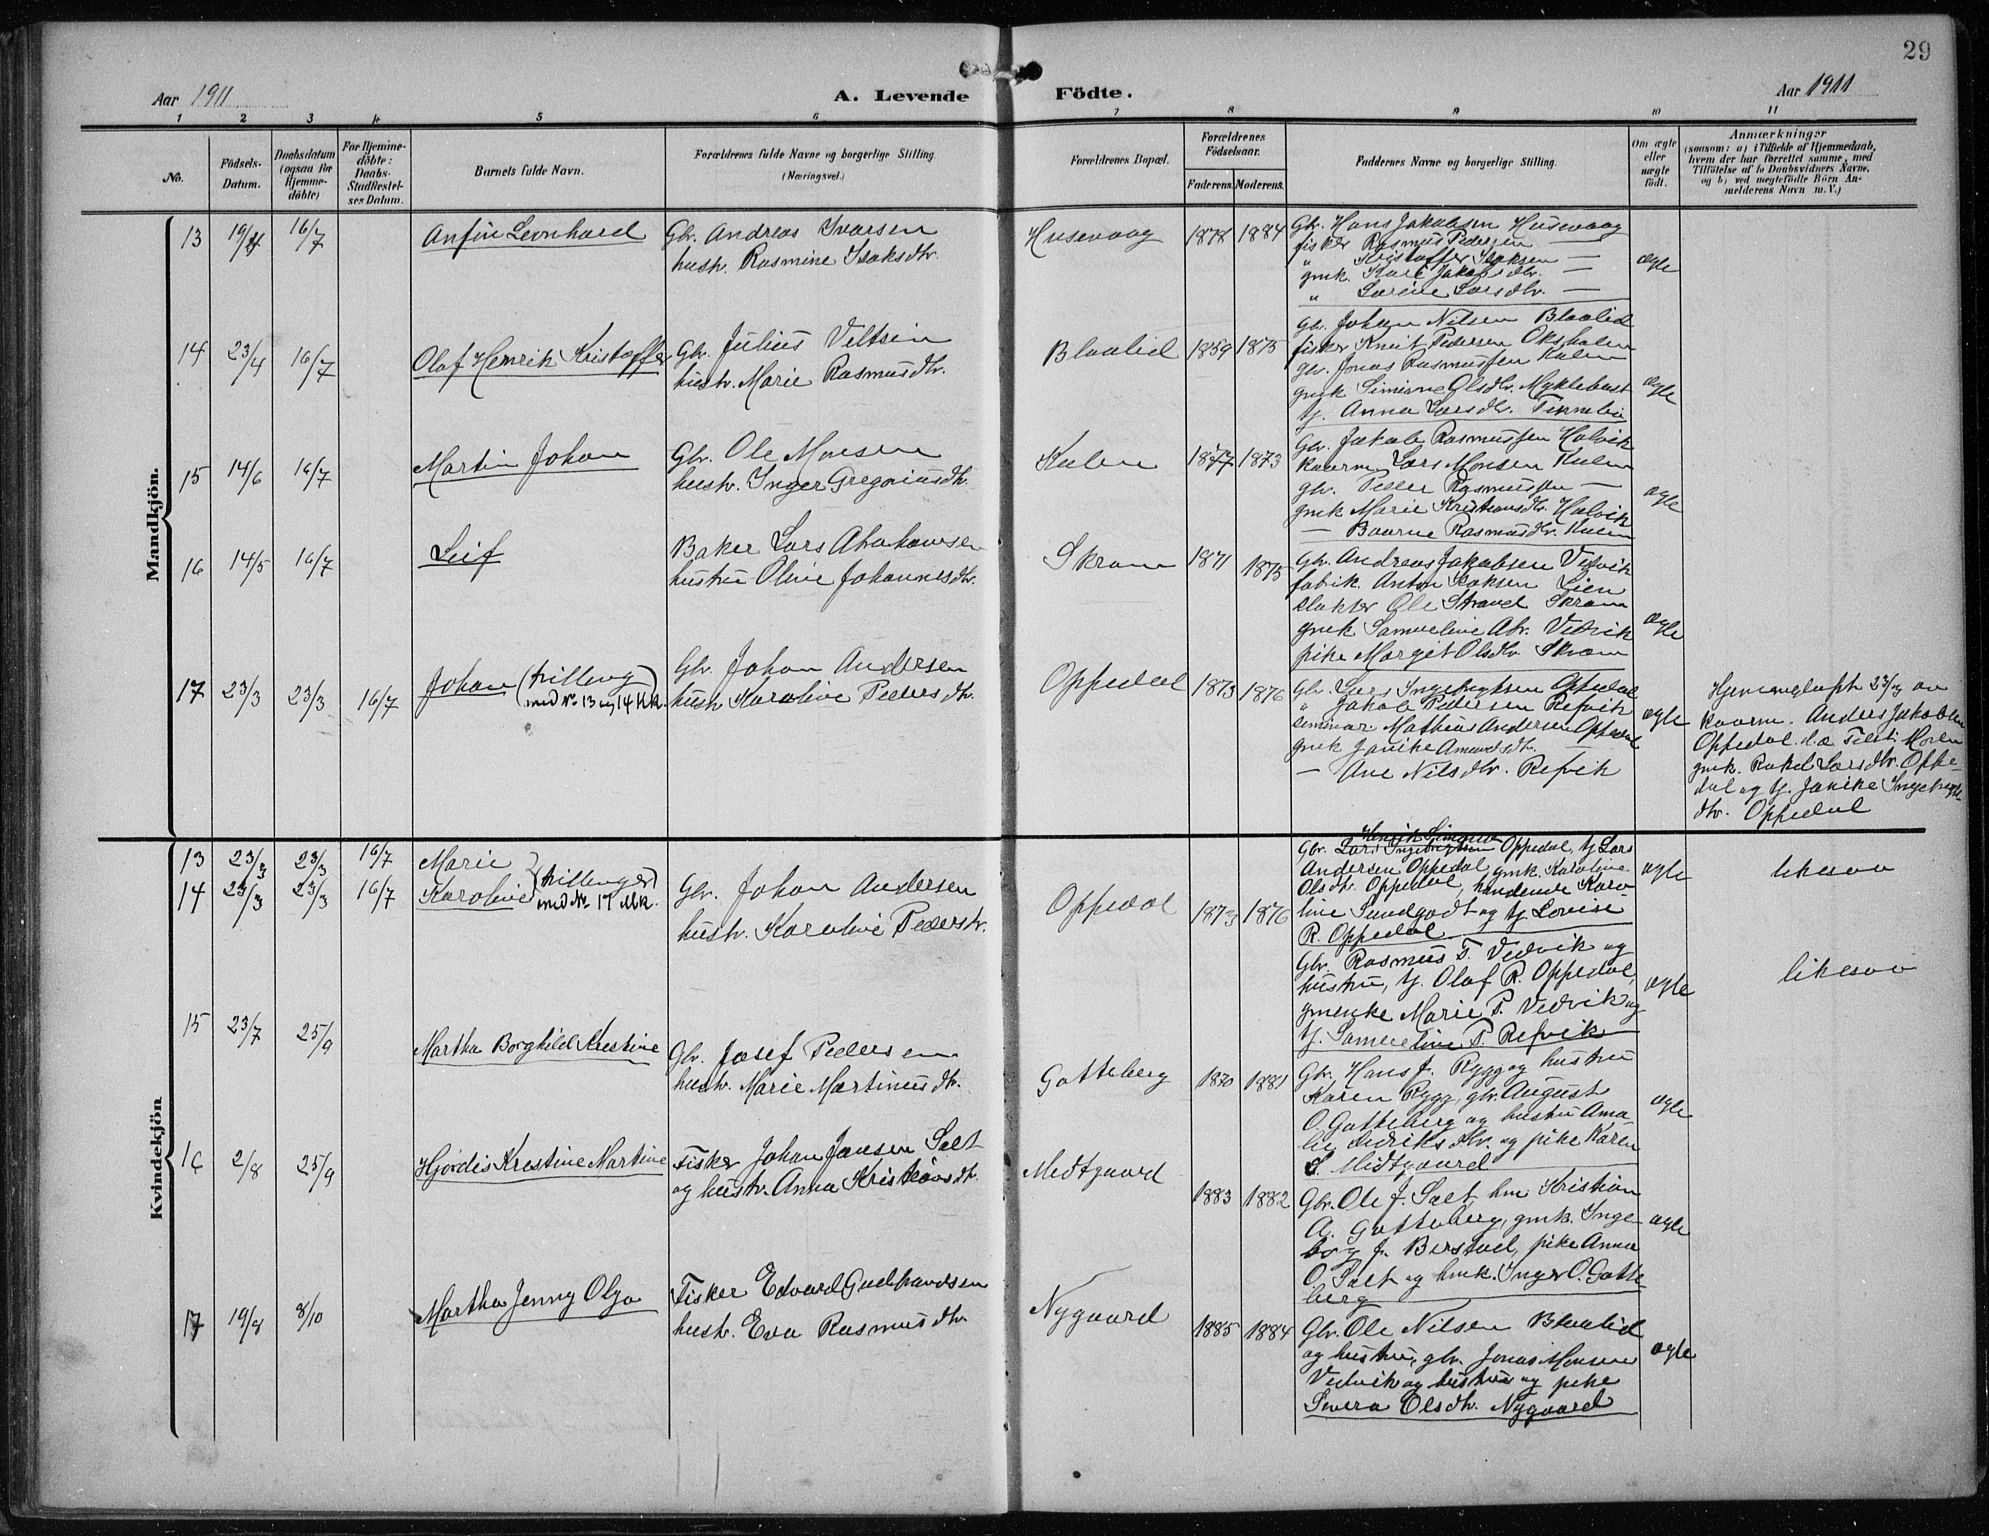 29
Aar 1911
A. Levende Födte.
Aar 1911
1 2 3 4 5 6 7 8 9 10 11
No.
Födsels-
Datum.
Daabsdatum
(ogsaa for
Hjemme-
döbte)
For Hjemme-
döbte:
Daabs-
Stadfæstel-
ses Datum.
Barnets fulde Navn.
Forældrenes fulde Navne og borgerlige Stilling.
(Næringsvei.)
Forældrenes Bopæl.
Forældrenes
Födselsaar.
Faderens. Moderens.
Faddernes Navne og borgerlige Stilling.
Om ægte
eller
uægte
født.
Anmærkninger
(saasom: a) (Tilfælde af Hjemmedaab,
hvem der har forrettet samme, med
Tilföielse af to Daabsvidners Navne,
og b) ved uægtefödte Börn An-
melderens Navn m. V.)
Mandkjön.
13 19/4 16/7 Anfin Leonhard
Gbr. Andreas Ivarsen
hustr. Rasmine Isaksdtr.
Husevaag 1878 1884
Gbr. Hans Jakobsen Husevaag
fisker Rasmus Pedersen —
" Kristoffer Isaksen —
gmk. Kari Jakobsdtr. —
" Larine Larsdtr. —
ægte
14 23/4 16/7 Olaf Henrik Kristoffer
Gbr. Julius Viltsin
hustr. Marie Rasmusdtr.
Blaalid 1859 1875
Gbr. Johan Nilsen Blaalid
fisker Knut Pedersen Okshalen
gbr. Jonas Rasmussen Kulen
gmk Simine Olsdtr. Myklebust
tj. Anna Larsdtr.
ægte
15 14/6 16/7 Martin Johan
Gbr. Ole Monsen
hustr. Inger Gregoriusdtr.
Kulen 1877 1873
Gbr. Jakob Rasmussen Halvik
kaarm. Lars Monsen Kulen
gbr. Peder Rasmussen —
gmk Marie Kristiansdtr. Halvik
— Rasmusdtr. Kulen
ægte
16 14/5 16/7 Leif
Baker Lars Abrahamsen
hustru Oline Johannesdtr.
Skram 1871 1875
Gbr. Andreas Jakobsen Vedvik
fabrik. Anton Isaksen Lien
slakter Ole Skram
gmk Samueline Abr. Vedvik
pike Margit Olsdtr. Skram
ægte
17 23/3 23/3 16/7 Johan (trilling
med No 13 og 14 Kk.)
Gbr. Johan Andersen
hustr. Karoline Pedersdtr.
Oppedal 1873 1876
Gbr. Lars Ingebrigtsen Oppedal
" Jakob Pedersen Refvik
seminar. Mathias Andersen Oppedal
gmk Janike Amundsdtr. —
— Ane Nilsdtr. Refvik
ægte
Hjemmedøpt 23/3 av
kaarm. Anders Jakobsen
Oppedal.
gmk. Rakel Larsdtr. Oppe-
dal og tj. Janike Ingebrigts-
dtr. Oppedal
Kvindekjön
13 23/3 23/3 16/7 Marie
14 23/3 23/3 16/7 Karoline (trillinger
med No 17 Mk.)
Gbr. Johan Andersen
hustr. Karoline Pedersdtr.
Oppedal 1873 1876
Henrik Simonsen
Gbr. Lars Ingebrigtsen Oppedal, tj Lars
Andersen Oppedal, gmk. Karoline
Olsdtr. Oppedal, handlende Karo
line Sundgodt og tj. Lovise
R. Oppedal
ægte likesaa
Gbr. Rasmus T. Vedvik og
hustru, tj. Olaf R. Oppedal,
gmenke Marie P. Vedvik og
tj. Samueline P. Refvik
ægte likesaa
15 23/7 25/9 Martha Borghild Kristine
Gbr. Josef Pedersen
hustr. Marie Martinusdtr.
Gotteberg 1870 1881
Gbr. Hans J. Rygg og hustru
Karen Rygg, gbr. August
O. Gotteberg og hustru Ama-
lie Didriksdtr. og pike Karen
S. Midtgaard
ægte
16 2/8 25/9 Hjørdis Kristine Martine
Fisker Johan Jansen Salt
og hustr. Anna Kristiansdtr.
Midtgaard 1883 1882
Gbr. Ole J. Salt, hm Kristian
A. Gotteberg, gmk. Inge-
borg J. Berstad, pike Anna
O. Salt og hmk. Inger O. Gotte
berg
ægte
17 19/8 8/10 Martha Jenny Olga
Fisker Edvard Gudbrandsen
hustr. Eva Rasmusdtr.
Nygaard 1885 1884
Gbr. Ole Nilsen Blaalid
og hustru, gbr. Jonas Monsen
Vedvik og hustru og pike
Severa Olsdtr. Nygaard
ægte